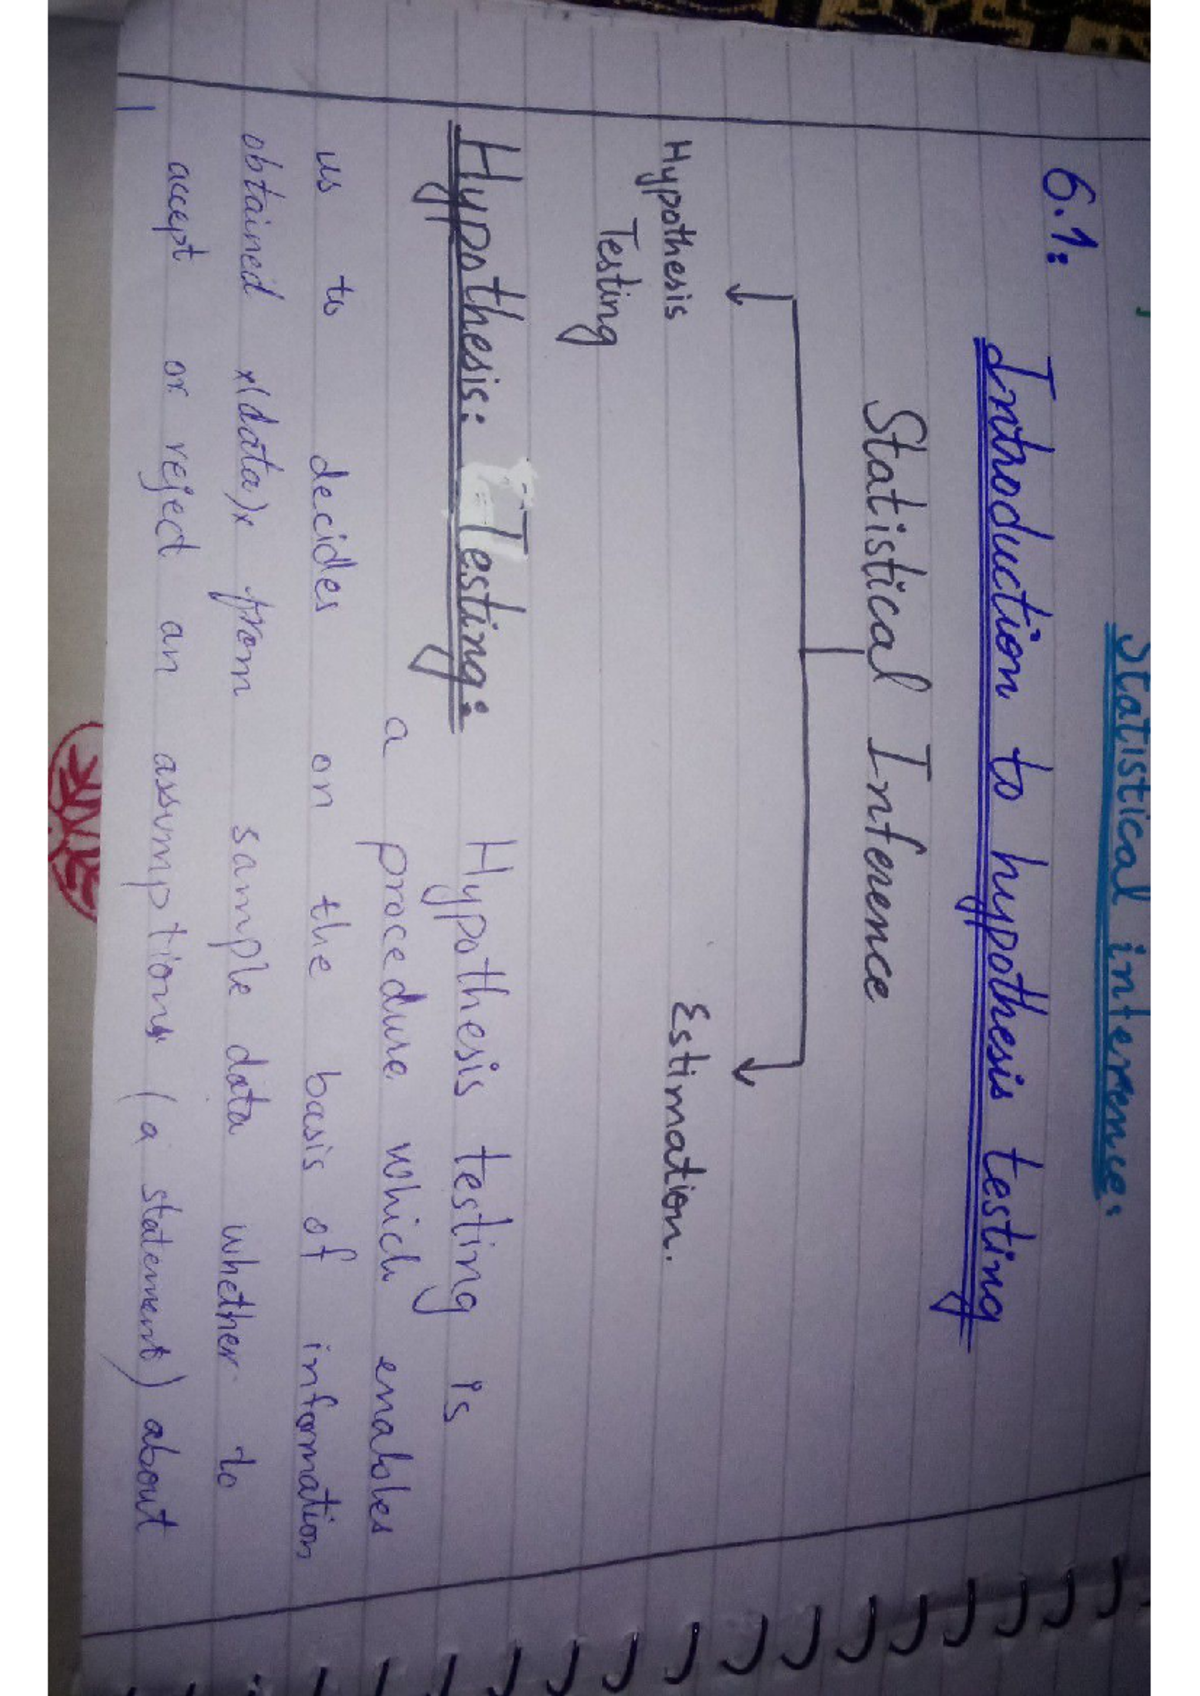 Statistical inference:
6.1: Introduction to hypothesis testing
Statistical Inference
Hypothesis Testing
Estimation.
Hypothesis: Testing: Hypothesis testing is
a procedure which enables
us to decides on the basis of information
obtained x(data)x from sample data whether to
accept or reject an assumptions (a statement) about